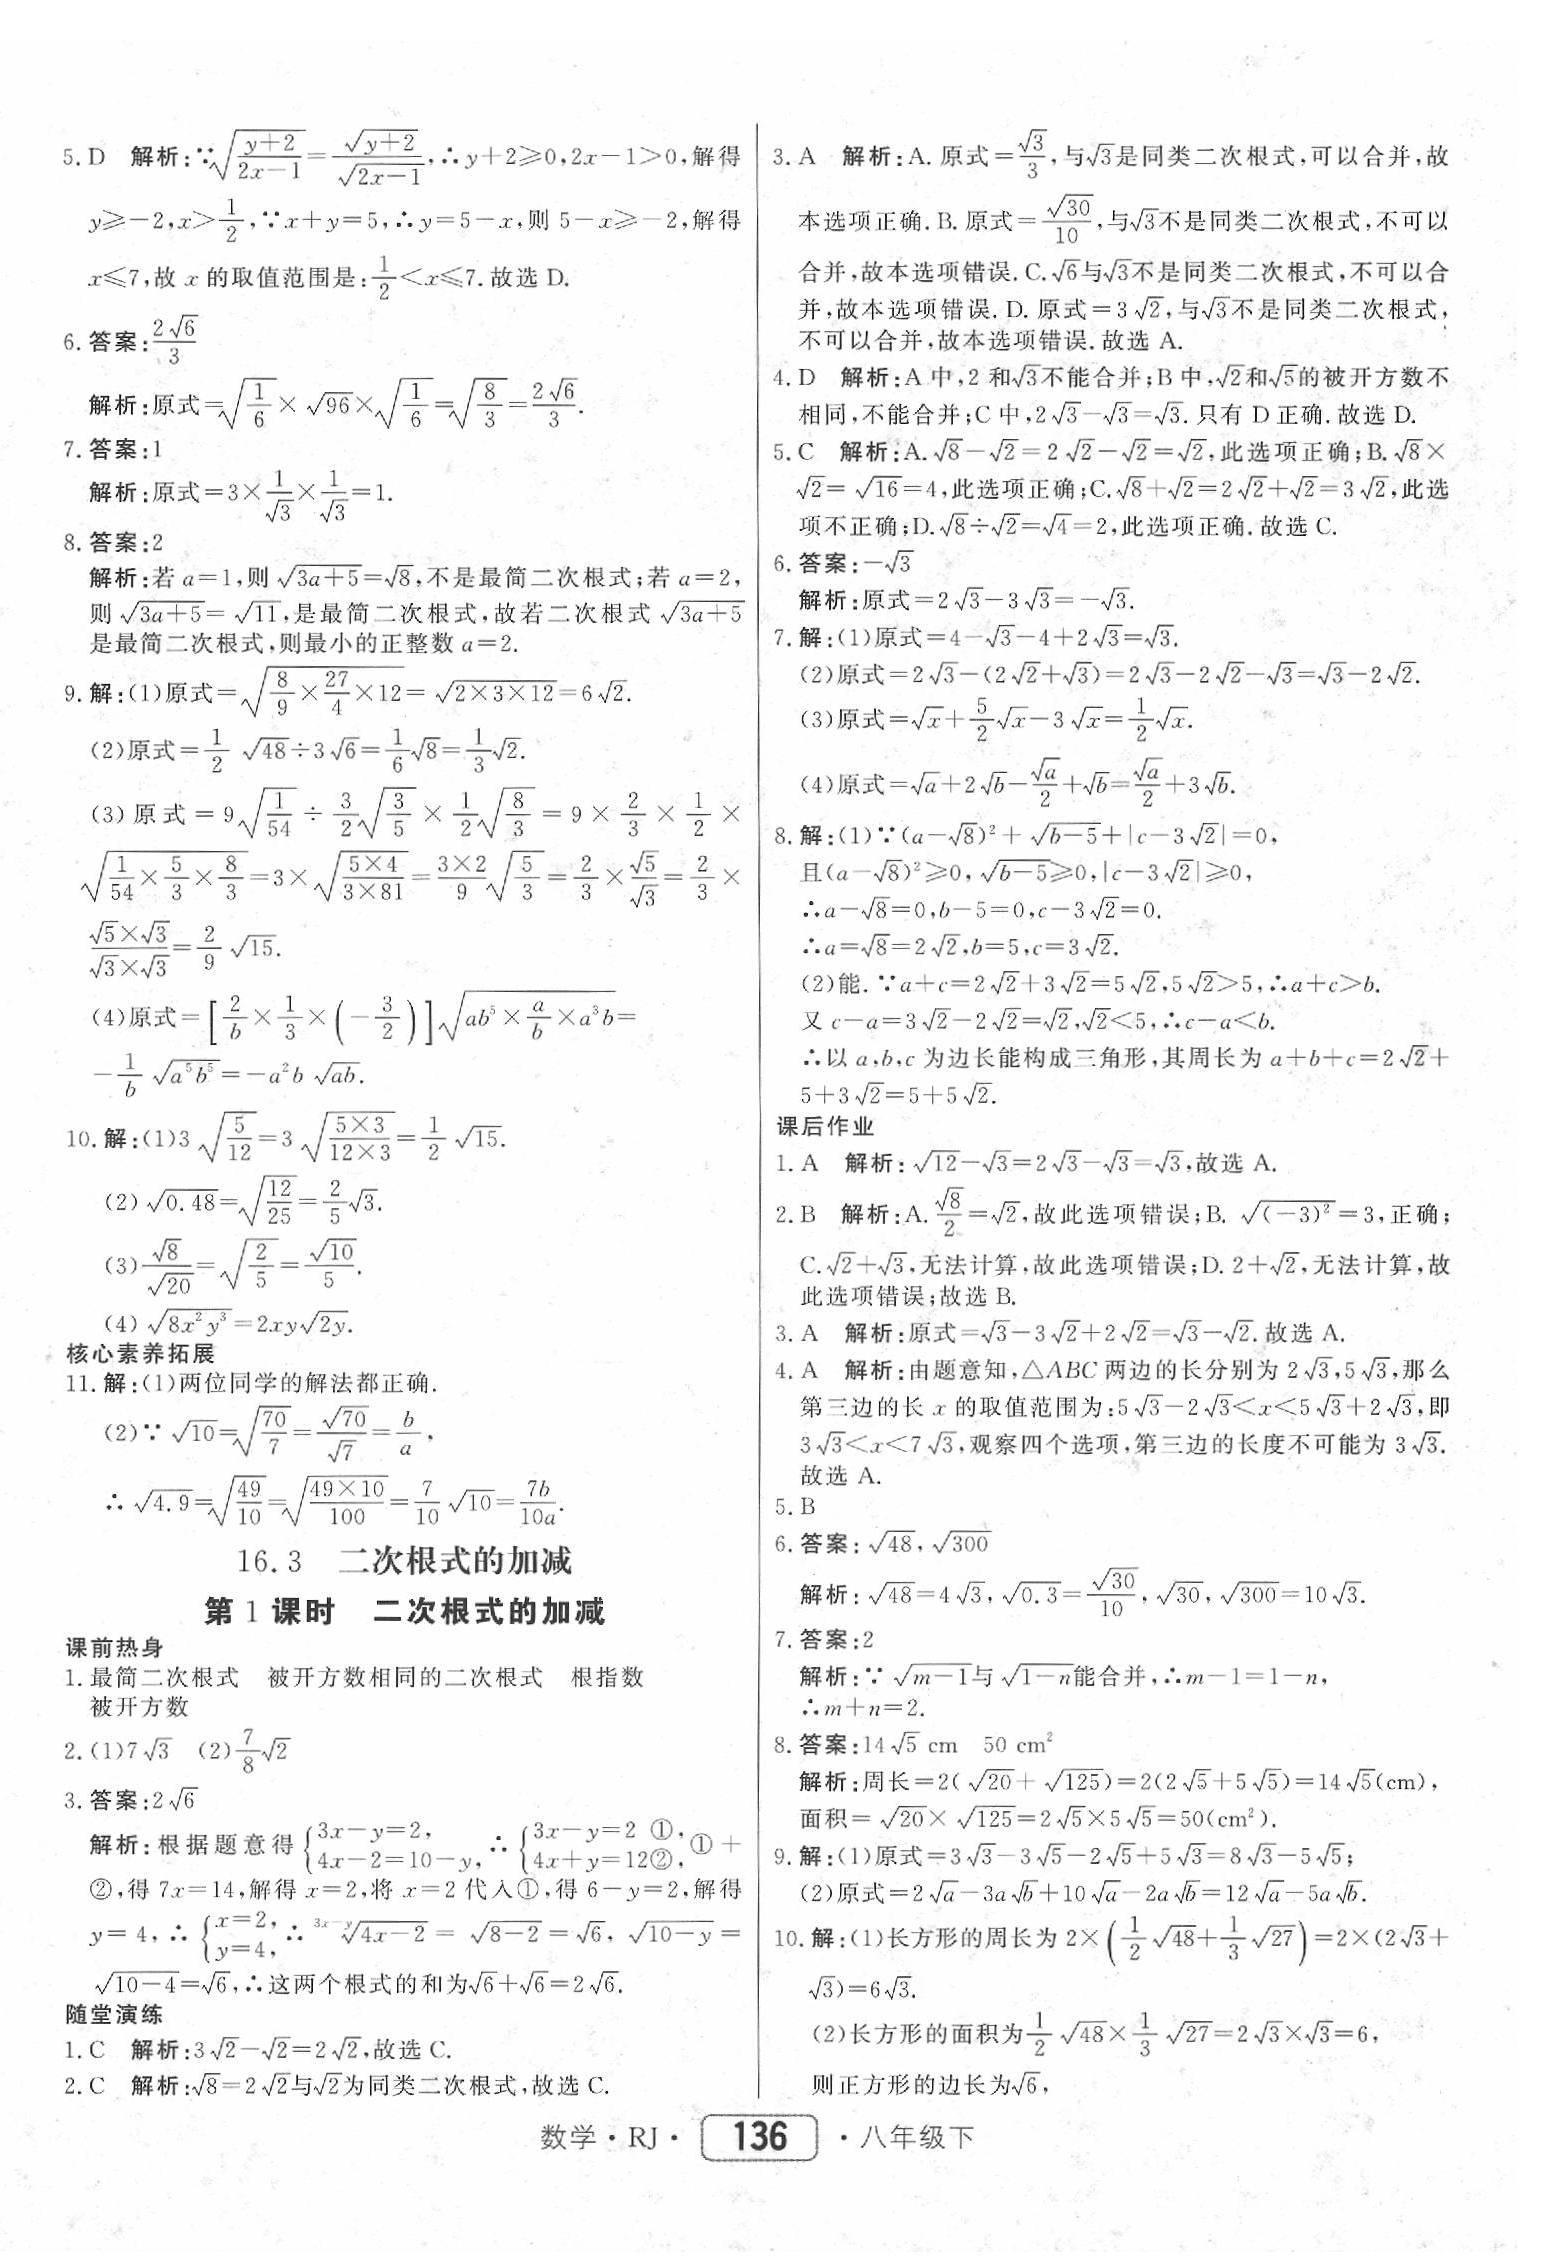 5. D 解析:∵√((y+2)/(2x−1))=√(y+2)/√(2x−1),∴y+2≥0,2x−1>0,解得
y≥−2,x>1/2,∵x+y=5,∴y=5−x,则 5−x≥−2,解得
x≤7,故 x 的取值范围是:1/2<x≤7.故选 D.
6. 答案:2√6/3
解析:原式=√(1/6)×√96×√(1/6)=√(8/3)=2√6/3.
7. 答案:1
解析:原式=3×1/√3×1/√3=1.
8. 答案:2
解析:若 a=1,则√(3a+5)=√8,不是最简二次根式;若 a=2,
则√(3a+5)=√11,是最简二次根式,故若二次根式√(3a+5)
是最简二次根式,则最小的正整数 a=2.
9. 解:(1)原式=√(8/9×27/4×12)=√(2×3×12)=6√2.
(2)原式=1/2 √48÷3√6=1/6√8=1/3√2.
(3)原式=9√(1/54)÷3/2√(3/5)×1/2√(8/3)=9×2/3×1/2×
√(1/54×5/3×8/3)=3×√((5×4)/(3×81))=(3×2)/9 √(5/3)=2/3×√5/√3=2/3×
(√5×√3)/(√3×√3)=2/9 √15.
(4)原式=[2/b×1/3×(−3/2)]√(ab⁵×a/b×a³b)=
−1/b √(a⁵b⁵)=−a²b √(ab).
10. 解:(1)3√(5/12)=3√((5×3)/(12×3))=1/2 √15.
(2)√0.48=√(12/25)=2/5√3.
(3)√8/√20=√(2/5)=√10/5.
(4)√(8x²y³)=2xy√(2y).
核心素养拓展
11. 解:(1)两位同学的解法都正确.
(2)∵√10=√(70/7)=√70/√7=b/a,
∴√4.9=√(49/10)=√((49×10)/100)=7/10 √10=7b/10a.
16.3 二次根式的加减
第 1 课时 二次根式的加减
课前热身
1. 最简二次根式 被开方数相同的二次根式 根指数
被开方数
2. (1)7√3 (2)7/8√2
3. 答案:2√6
解析:根据题意得{3x−y=2, 4x−2=10−y, ∴{3x−y=2 ①, 4x+y=12②, ①+
②,得 7x=14,解得 x=2,将 x=2 代入①,得 6−y=2,解得
y=4,∴{x=2, y=4, ∴ ³ˣ⁻ʸ√(4x−2)=√(8−2)=√6,√(10−y)=
√(10−4)=√6,∴这两个根式的和为√6+√6=2√6.
随堂演练
1. C 解析:3√2−√2=2√2,故选 C.
2. C 解析:√8=2√2与√2为同类二次根式,故选 C.
3. A 解析:A. 原式=√3/3,与√3是同类二次根式,可以合并,故
本选项正确. B. 原式=√30/10,与√3不是同类二次根式,不可以
合并,故本选项错误. C. √6与√3不是同类二次根式,不可以合
并,故本选项错误. D. 原式=3√2,与√3不是同类二次根式,
不可以合并,故本选项错误. 故选 A.
4. D 解析:A 中,2 和√3不能合并;B 中,√2和√5的被开方数不
相同,不能合并;C 中,2√3−√3=√3. 只有 D 正确. 故选 D.
5. C 解析:A. √8−√2=2√2−√2=√2,此选项正确;B. √8×
√2=√16=4,此选项正确;C. √8+√2=2√2+√2=3√2,此选
项不正确;D. √8÷√2=√4=2,此选项正确. 故选 C.
6. 答案:−√3
解析:原式=2√3−3√3=−√3.
7. 解:(1)原式=4−√3−4+2√3=√3.
(2)原式=2√3−(2√2+√3)=2√3−2√2−√3=√3−2√2.
(3)原式=√x+5/2√x−3√x=1/2√x.
(4)原式=√a+2√b−√a/2+√b=√a/2+3√b.
8. 解:(1)∵(a−√8)²+√(b−5)+|c−3√2|=0,
且(a−√8)²≥0,√(b−5)≥0,|c−3√2|≥0,
∴a−√8=0,b−5=0,c−3√2=0.
∴a=√8=2√2,b=5,c=3√2.
(2)能. ∵a+c=2√2+3√2=5√2,5√2>5,∴a+c>b.
又 c−a=3√2−2√2=√2,√2<5,∴c−a<b.
∴以 a,b,c 为边长能构成三角形,其周长为 a+b+c=2√2+
5+3√2=5+5√2.
课后作业
1. A 解析:√12−√3=2√3−√3=√3,故选 A.
2. B 解析:A. √8/2=√2,故此选项错误;B. √((−3)²)=3,正确;
C. √2+√3,无法计算,故此选项错误;D. 2+√2,无法计算,故
此选项错误;故选 B.
3. A 解析:原式=√3−3√2+2√2=√3−√2. 故选 A.
4. A 解析:由题意知,△ABC 两边的长分别为 2√3,5√3,那么
第三边的长 x 的取值范围为:5√3−2√3<x<5√3+2√3,即
3√3<x<7√3,观察四个选项,第三边的长度不可能为 3√3.
故选 A.
5. B
6. 答案:√48,√300
解析:√48=4√3,√0.3=√30/10,√30,√300=10√3.
7. 答案:2
解析:∵√(m−1)与√(1−n)能合并,∴m−1=1−n,
∴m+n=2.
8. 答案:14√5 cm 50 cm²
解析:周长=2(√20+√125)=2(2√5+5√5)=14√5(cm),
面积=√20×√125=2√5×5√5=50(cm²).
9. 解:(1)原式=3√3−3√5−2√5+5√3=8√3−5√5;
(2)原式=2√a−3a√b+10√a−2a√b=12√a−5a√b.
10. 解:(1)长方形的周长为 2×(1/2 √48+1/3 √27)=2×(2√3+
√3)=6√3.
(2)长方形的面积为1/2 √48×1/3 √27=2√3×√3=6,
则正方形的边长为√6,
数学·RJ· 136 ·八年级下